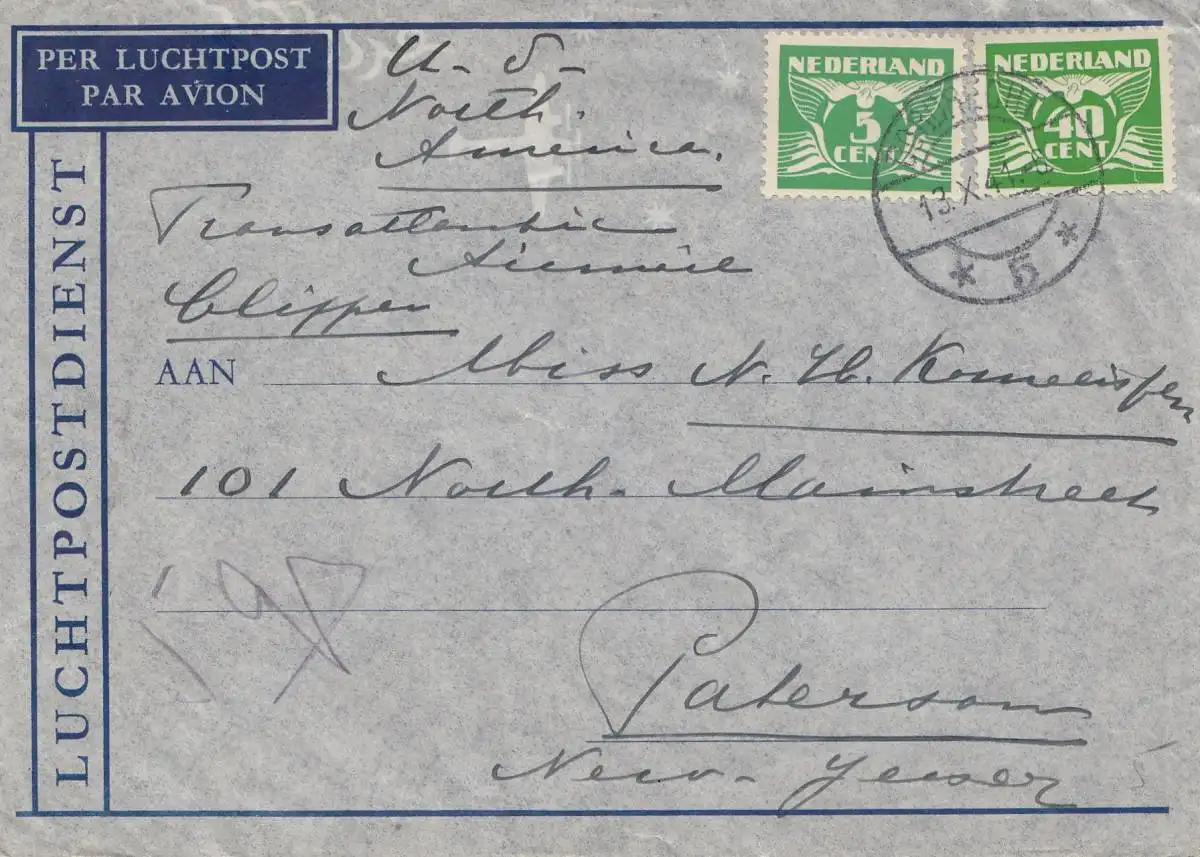 PER LUCHTPOST
PAR AVION
LUCHTPOSTDIENST
U-S-
North.
America.
Transatlantic
Airmail
Clipper
NEDERLAND
5
CENT
NEDERLAND
40
CENT
13.X.41
* 5 *
AAN Miss N. H.
101 North. Mainstreet
Paterson
New-Yersey